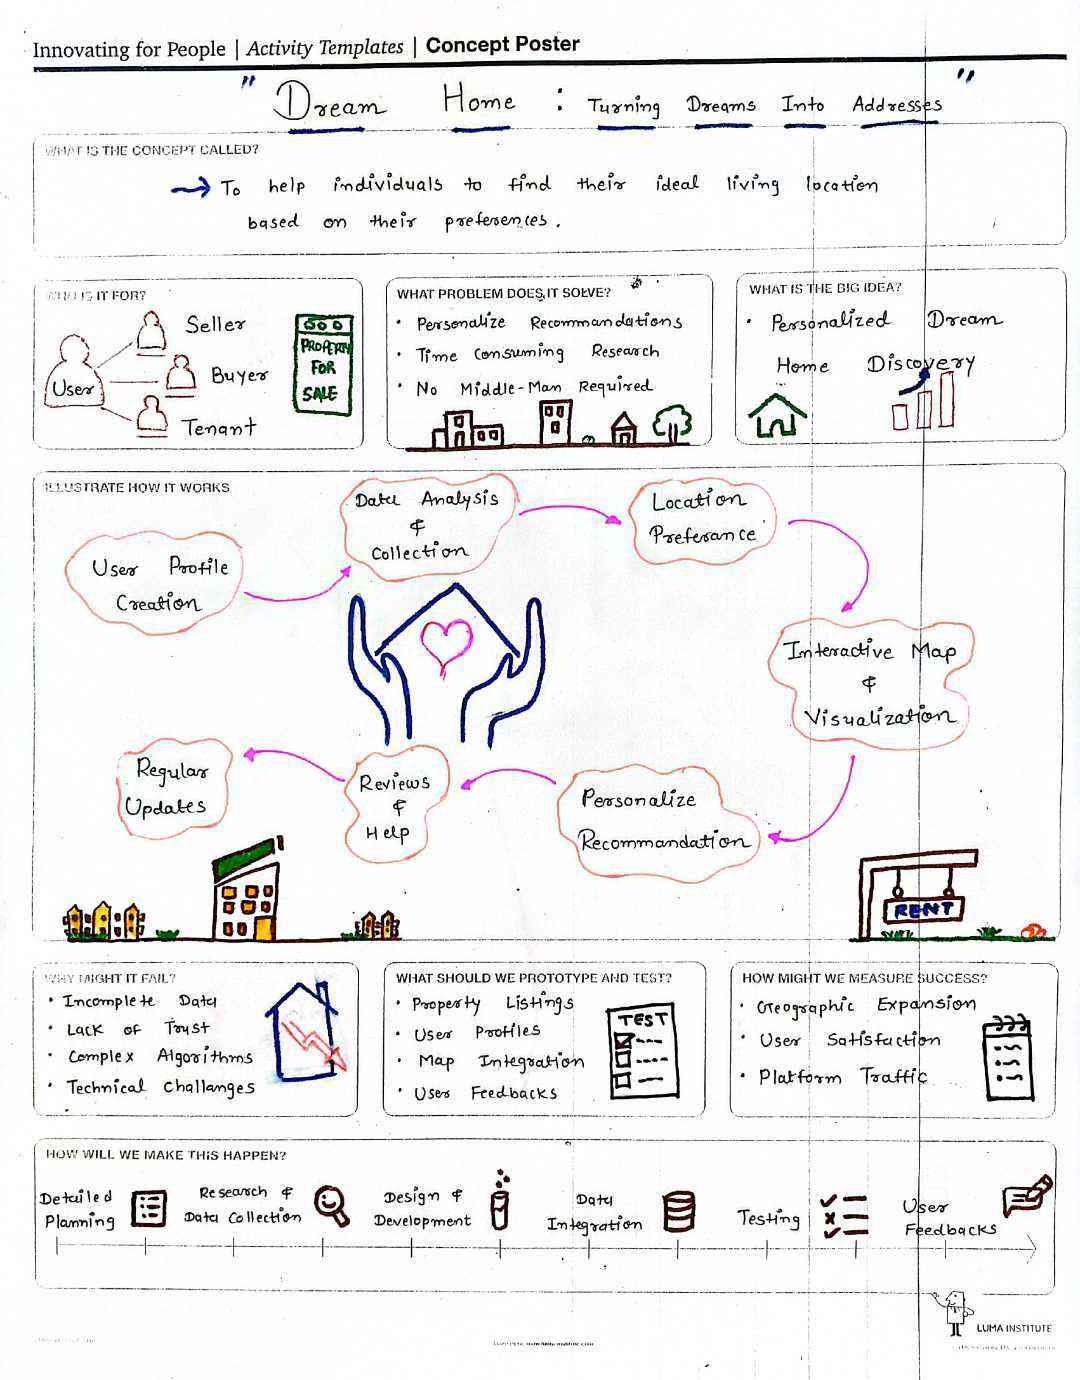 Innovating for People | Activity Templates | Concept Poster
" Dream Home : Turning Dreams Into Addresses "
WHAT IS THE CONCEPT CALLED?
→ To help individuals to find their ideal living location
based on their preferences.
WHO IS IT FOR?
User
Seller
Buyer
Tenant
PROPERTY
FOR
SALE
WHAT PROBLEM DOES IT SOLVE?
• Personalize Recommandations
• Time Consuming Research
• No Middle-Man Required
WHAT IS THE BIG IDEA?
• Personalized Dream
Home Discovery
ILLUSTRATE HOW IT WORKS
User Profile
Creation
Data Analysis
&
Collection
Location
Preferance
Interactive Map
&
Visualization
Personalize
Recommandation
Reviews
&
Help
Regular
Updates
RENT
WHY MIGHT IT FAIL?
• Incomplete Data
• Lack of Trust
• Complex Algorithms
• Technical Challanges
WHAT SHOULD WE PROTOTYPE AND TEST?
• Property Listings
• User Profiles
• Map Integration
• User Feedbacks
TEST
HOW MIGHT WE MEASURE SUCCESS?
• Geographic Expansion
• User Satisfaction
• Platform Traffic
HOW WILL WE MAKE THIS HAPPEN?
Detailed
Planning
Research &
Data Collection
Design &
Development
Data
Integration
Testing
User
Feedbacks
LUMA INSTITUTE